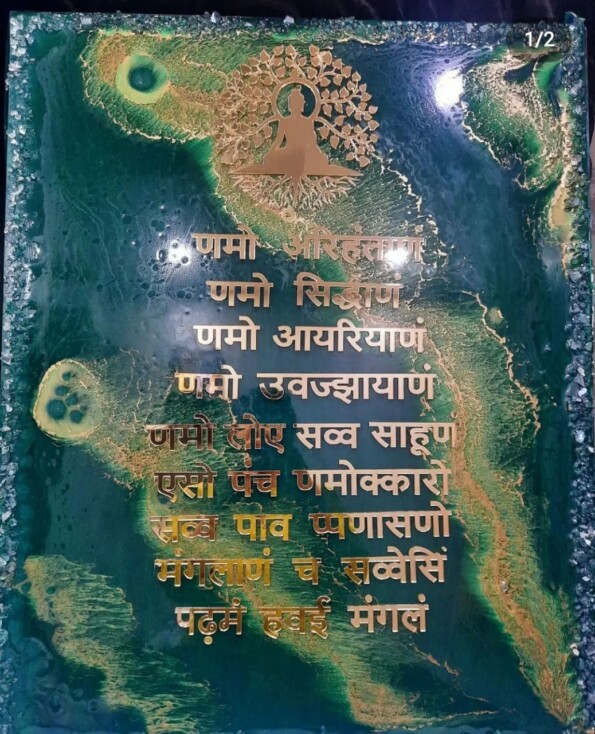 1/2
णमो अरिहंताणं
णमो सिद्धाणं
णमो आयरियाणं
णमो उवज्झायाणं
णमो लोए सव्व साहूणं
एसो पंच णमोक्कारो
सव्व पाव प्पणासणो
मंगलाणं च सव्वेसिं
पढ़मं हवई मंगलं